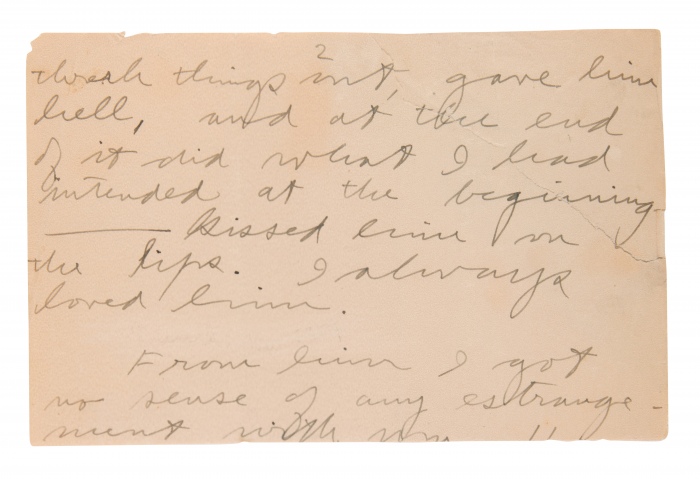 2
thresh things out, gave him
hell, and at the end
of it did what I had
intended at the beginning-
— kissed him on
the lips. I always
loved him.
From him I got
no sense of any estrange-
ment with